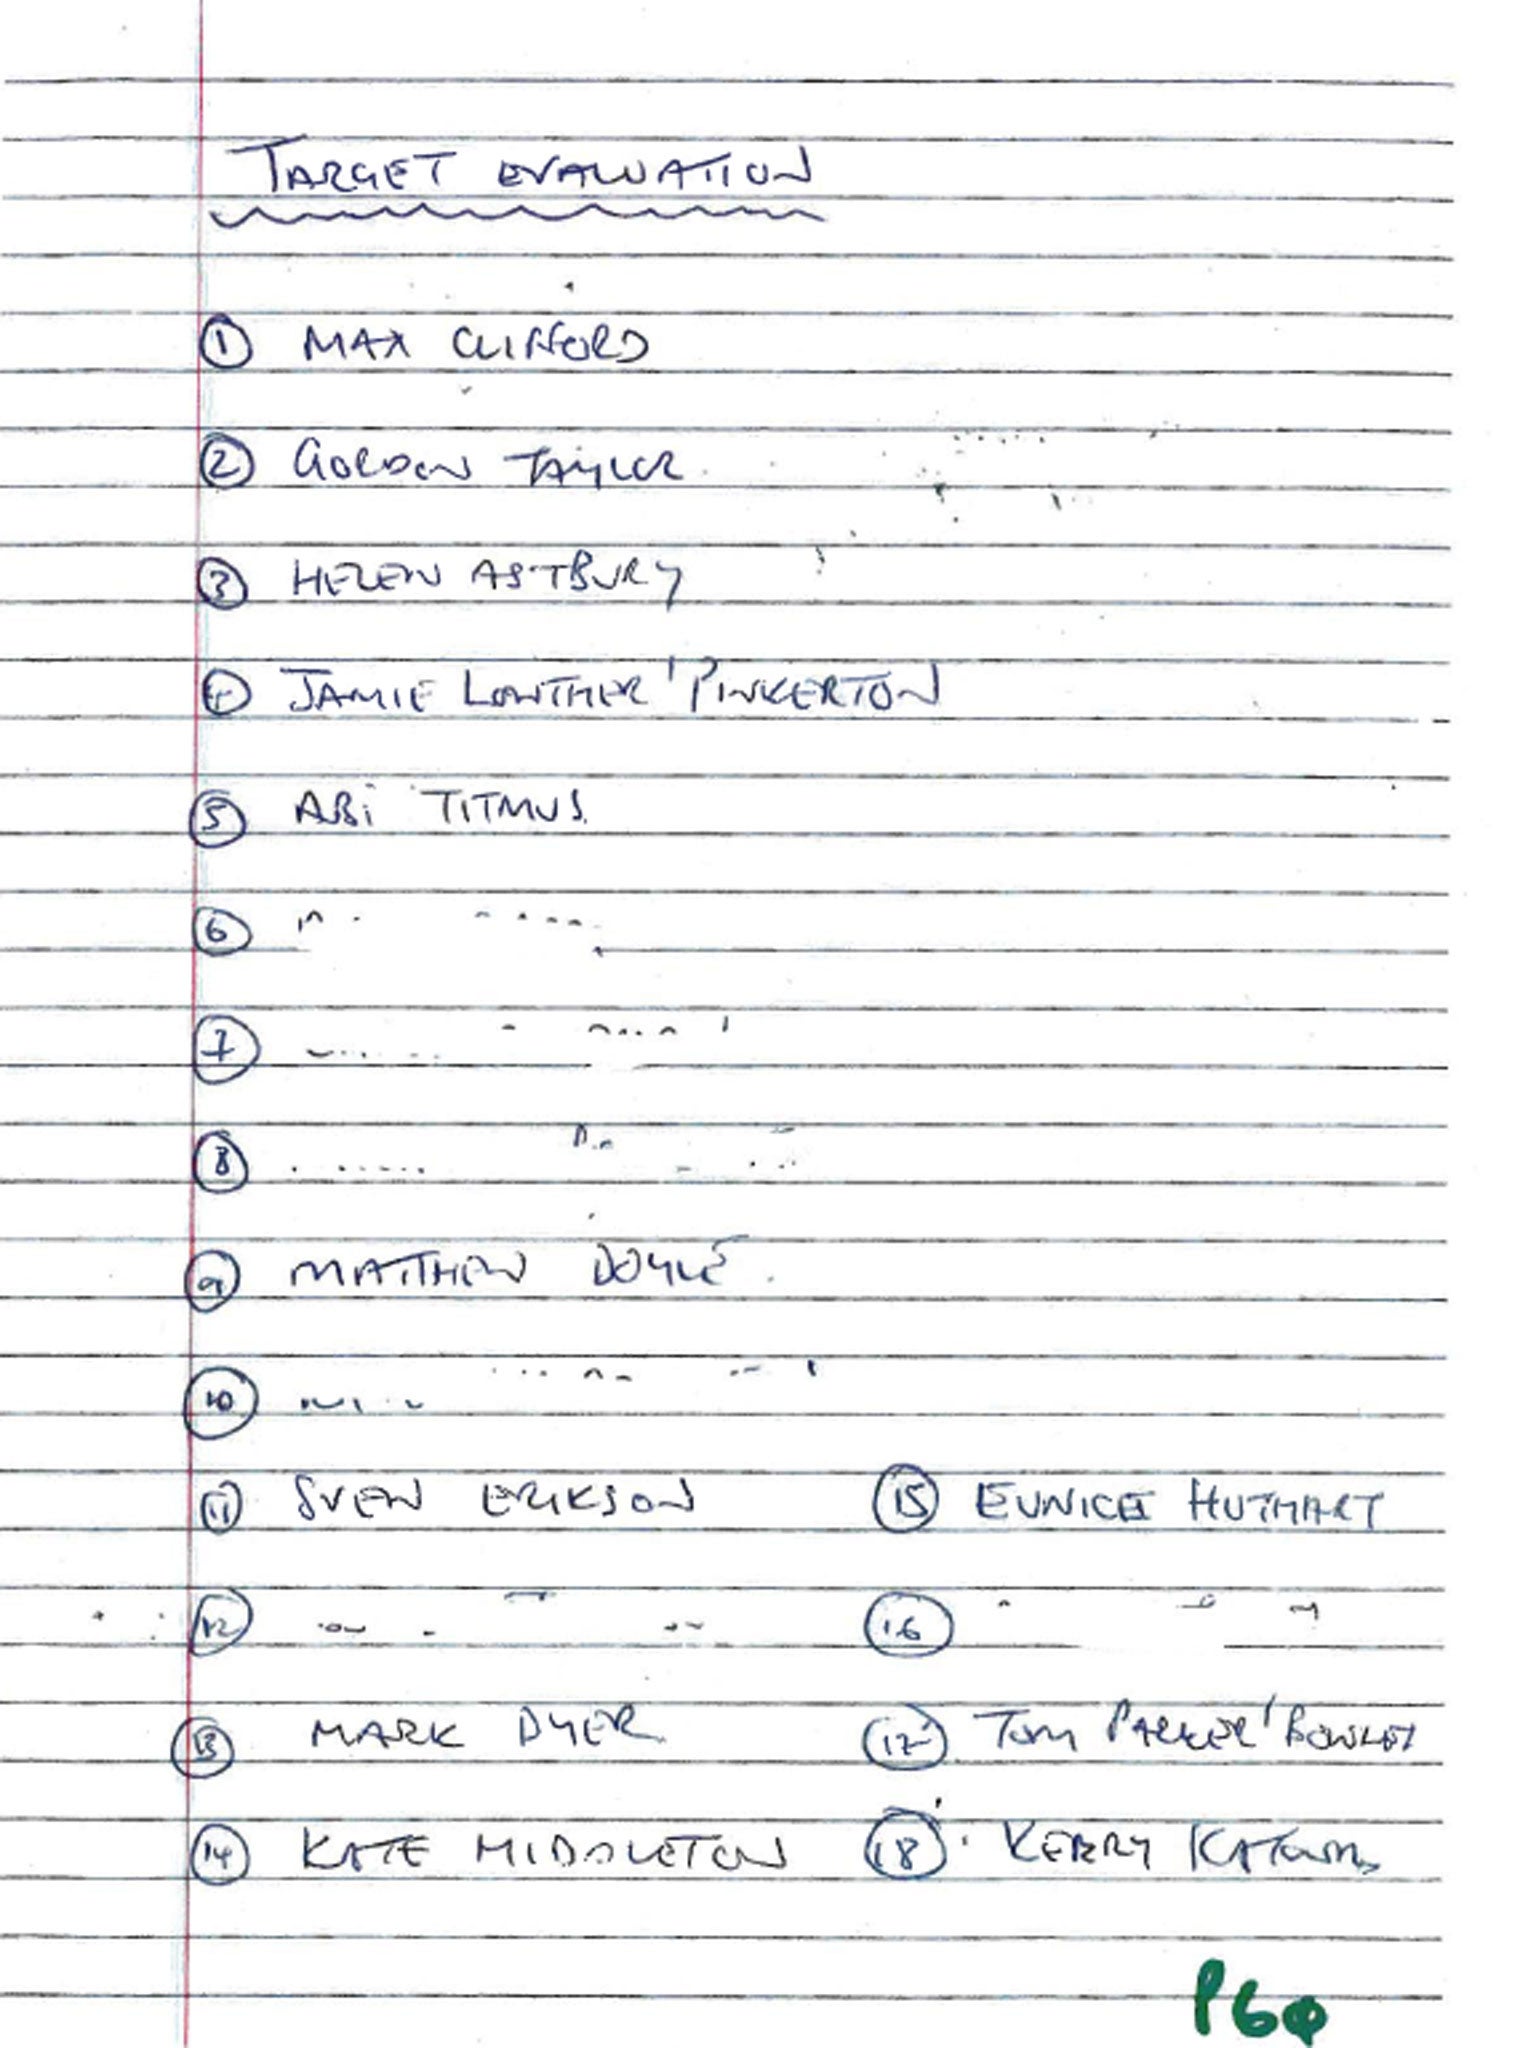 TARGET EVALUATION
① MAX CLIFFORD
② GORDON TAYLOR
③ HELEN ASTBURY
④ JAMIE LOWTHER'PINKERTON
⑤ ABi TITMUS
⑥
⑦
⑧
⑨ MATTHEW DOYLE
⑩
⑪ SVEN ERIKSON
⑮ EUNICE HUTHART
⑫
⑯
⑬ MARK DYER
⑰ TOM PARKER'BOWLES
⑭ KATE MIDDLETON
⑱ KERRY KATONA
P60